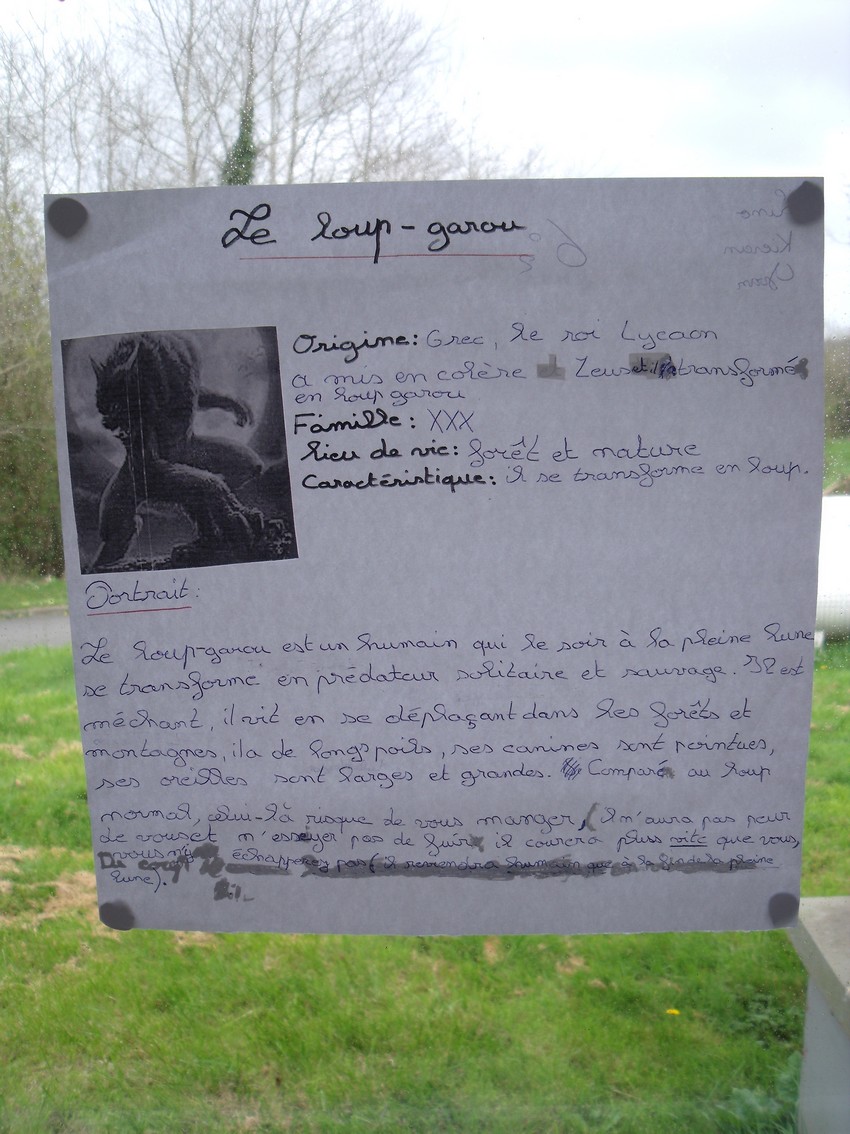 Le loup-garou
Origine: Grec, le roi Lycaon
a mis en colère Zeus et il l'a transformé
en loup garou
Famille: XXX
Lieu de vie: forêt et nature
Caractéristique: il se transforme en loup.
Portrait:
Le loup-garou est un humain qui le soir à la pleine lune
se transforme en prédateur solitaire et sauvage. Il est
méchant, il vit en se déplaçant dans les forêts et
montagnes, il a de longs poils, ses canines sont pointues,
ses oreilles sont larges et grandes. Comparé au loup
normal, celui-là risque de vous manger, il n'aura pas peur
de vous et n'essayer pas de fuir, il courera pluss vite que vous,
vous n'y échapperez pas (il reviendra humain que à la fin de la pleine
lune).